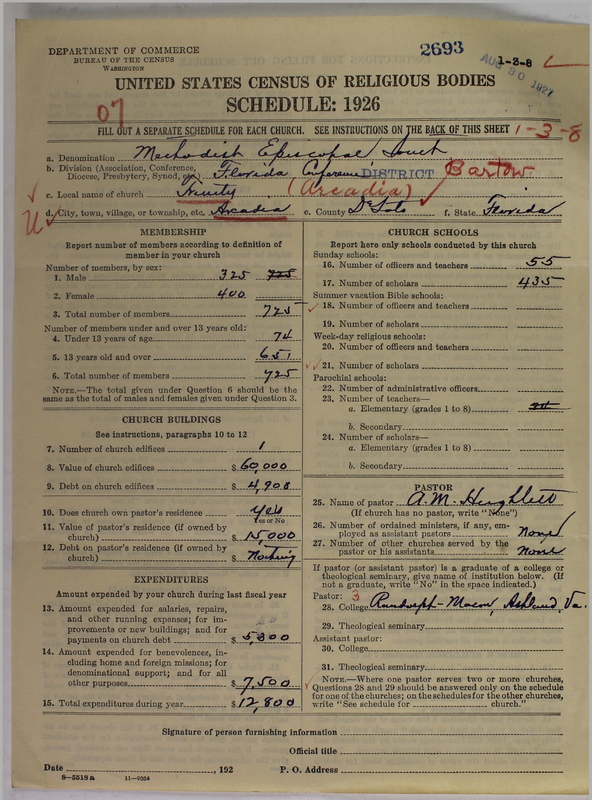 DEPARTMENT OF COMMERCE
BUREAU OF THE CENSUS
WASHINGTON
2693
AUG 30 1927
1-3-8
UNITED STATES CENSUS OF RELIGIOUS BODIES
SCHEDULE: 1926
07
FILL OUT A SEPARATE SCHEDULE FOR EACH CHURCH. SEE INSTRUCTIONS ON THE BACK OF THIS SHEET
1-3-8
a. Denomination Methodist Episcopal South
b. Division (Association, Conference, Diocese, Presbytery, Synod, etc.) Florida Conference DISTRICT Bartow
c. Local name of church Trinity (Arcadia)
U
d. City, town, village, or township, etc. Arcadia e. County De Soto f. State Florida
MEMBERSHIP
Report number of members according to definition of
member in your church
Number of members, by sex:
1. Male 325 725
2. Female 400
3. Total number of members 725
Number of members under and over 13 years old:
4. Under 13 years of age 74
5. 13 years old and over 651
6. Total number of members 725
NOTE.—The total given under Question 6 should be the
same as the total of males and females given under Question 3.
CHURCH BUILDINGS
See instructions, paragraphs 10 to 12
7. Number of church edifices 1
8. Value of church edifices $ 60,000
9. Debt on church edifices $ 4,908
10. Does church own pastor's residence yes
Yes or No
11. Value of pastor's residence (if owned by
church) $ 15,000
12. Debt on pastor's residence (if owned by
church) $ Nothing
EXPENDITURES
Amount expended by your church during last fiscal year
13. Amount expended for salaries, repairs,
and other running expenses; for im-
provements or new buildings; and for
payments on church debt $ 5,300
14. Amount expended for benevolences, in-
cluding home and foreign missions; for
denominational support; and for all
other purposes $ 7,500
15. Total expenditures during year $ 12,800
CHURCH SCHOOLS
Report here only schools conducted by this church
Sunday schools:
16. Number of officers and teachers 55
17. Number of scholars 435
Summer vacation Bible schools:
18. Number of officers and teachers
19. Number of scholars
Week-day religious schools:
20. Number of officers and teachers
21. Number of scholars
Parochial schools:
22. Number of administrative officers
23. Number of teachers—
a. Elementary (grades 1 to 8)
b. Secondary
24. Number of scholars—
a. Elementary (grades 1 to 8)
b. Secondary
PASTOR
25. Name of pastor A. M. Hughlett
(If church has no pastor, write "None")
26. Number of ordained ministers, if any, em-
ployed as assistant pastors None
27. Number of other churches served by the
pastor or his assistants None
If pastor (or assistant pastor) is a graduate of a college or
theological seminary, give name of institution below. (If
not a graduate, write "No" in the space indicated.)
Pastor: 3
28. College Randolph-Macon, Ashland, Va.
29. Theological seminary
Assistant pastor:
30. College
31. Theological seminary
NOTE.—Where one pastor serves two or more churches,
Questions 28 and 29 should be answered only on the schedule
for one of the churches; on the schedules for the other churches,
write "See schedule for church."
Signature of person furnishing information
Official title
Date , 192 P. O. Address
8-5518a 11-9554